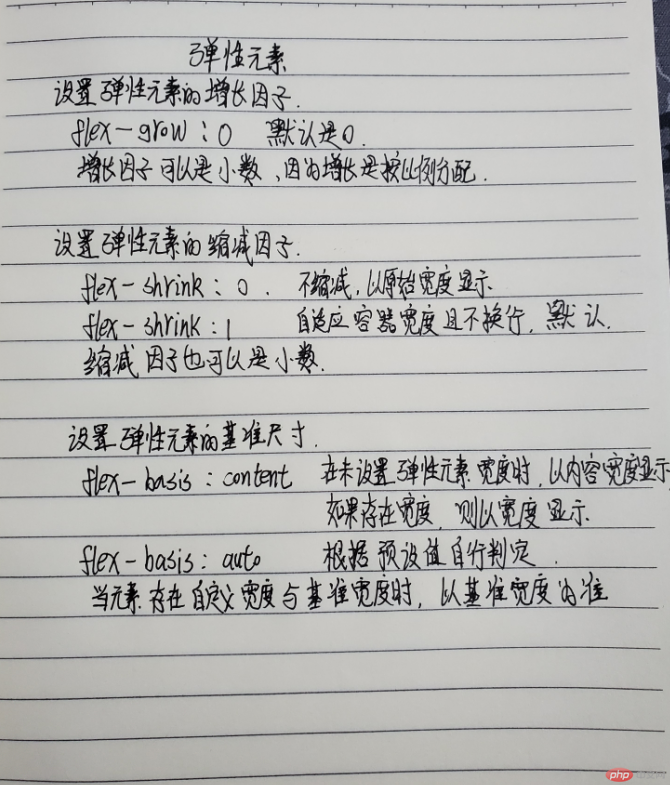 弹性元素
设置弹性元素的增长因子.
flex-grow : 0 默认是0.
增长因子可以是小数,因为增长是按比例分配.
设置弹性元素的缩减因子.
flex-shrink : 0. 不缩减,以原始宽度显示
flex-shrink : 1 自适应容器宽度且不换行,默认.
缩减因子也可以是小数.
设置弹性元素的基准尺寸.
flex-basis : content 在未设置弹性元素宽度时,以内容宽度显示
如果存在宽度,则以宽度显示
flex-basis : auto 根据预设值自行判定.
当元素存在自定义宽度与基准宽度时,以基准宽度为准
php